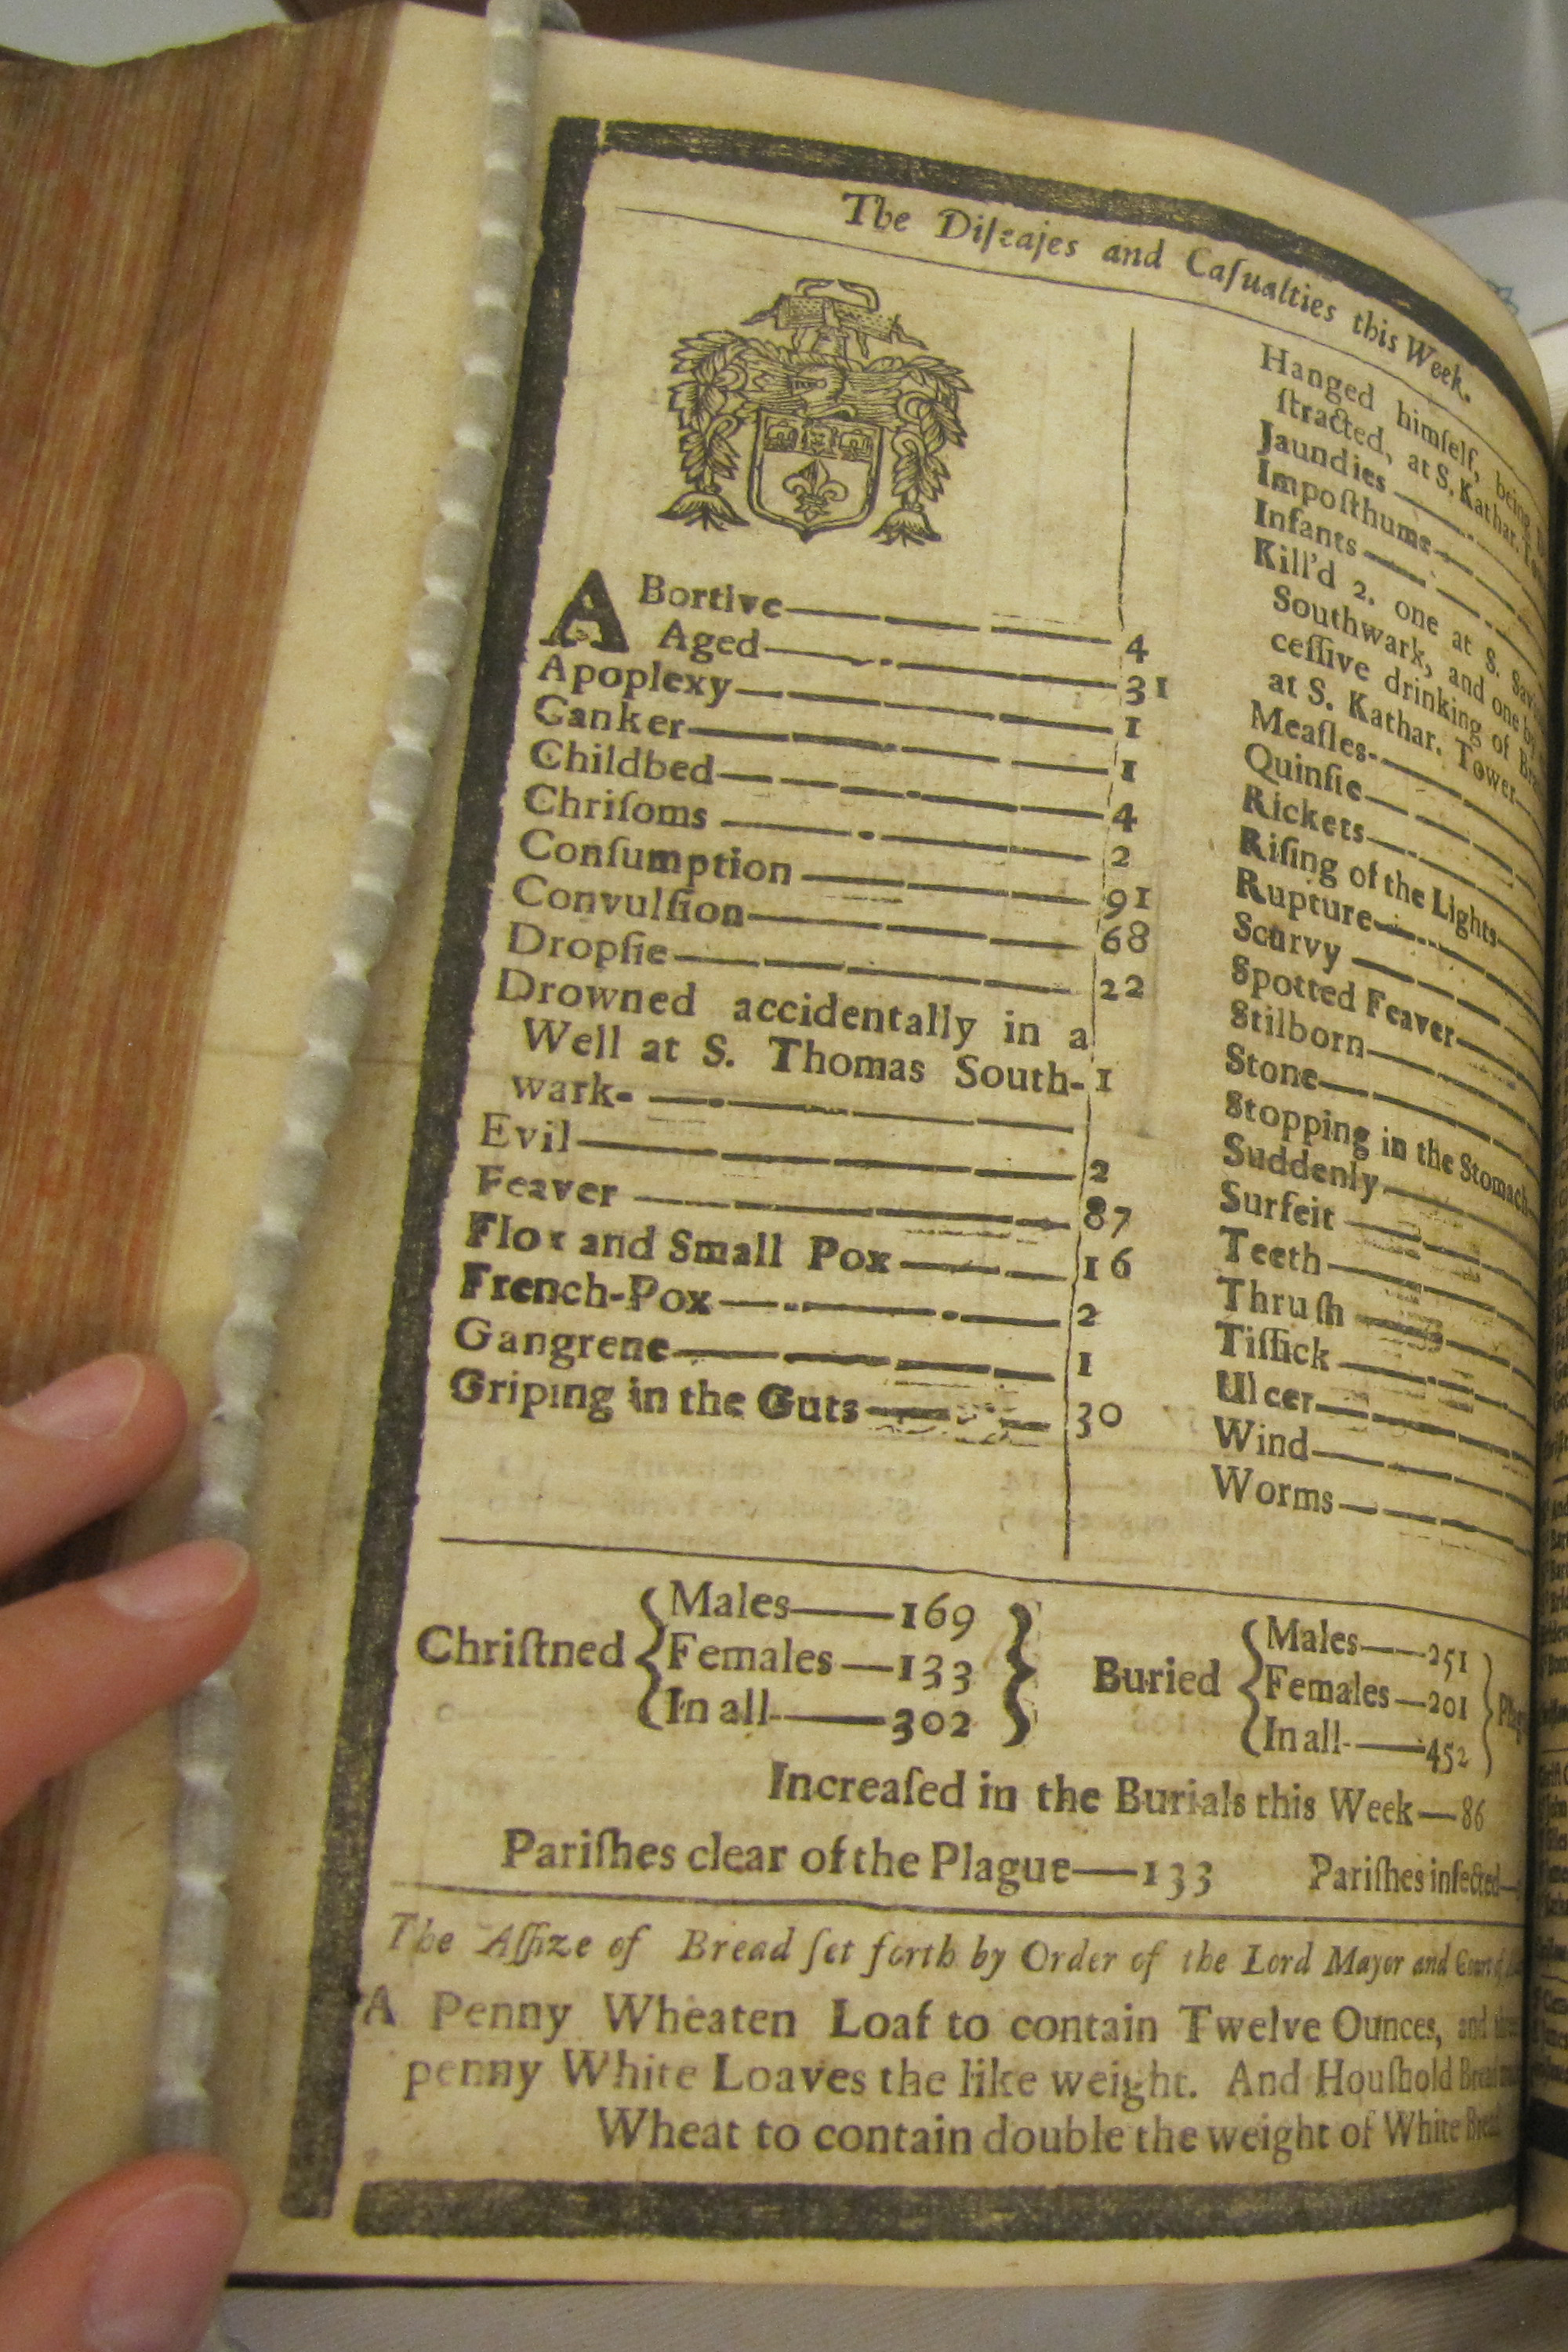 The Diſeaſes and Caſualties this Week.
ABortive 4
Aged 31
Apoplexy 1
Canker 1
Childbed 4
Chriſoms 2
Conſumption 91
Convulſion 68
Dropſie 22
Drowned accidentally in a
Well at S. Thomas South- 1
wark-
Evil 2
Feaver 87
Flox and Small Pox 16
French-Pox 2
Gangrene 1
Griping in the Guts 30
Hanged himſelf, being
ſtracted, at S. Kathar.
Jaundies
Impoſthume
Infants
Kill'd 2. one at S.
Southwark, and one by
ceſſive drinking of
at S. Kathar. Tower
Meaſles
Quinſie
Rickets
Riſing of the Lights
Rupture
Scurvy
Spotted Feaver
Stilborn
Stone
Stopping in the Stomach
Suddenly
Surfeit
Teeth
Thruſh
Tiſſick
Ulcer
Wind
Worms
Chriſtned { Males—169 Females—133 In all—302 }
Buried { Males—251 Females—201 In all—452 }
Increaſed in the Burials this Week—86
Pariſhes clear of the Plague—133 Pariſhes infected—
The Aſſize of Bread ſet forth by Order of the Lord Mayor and Court
A Penny Wheaten Loaf to contain Twelve Ounces, and
penny White Loaves the like weight. And Houſhold Bread
Wheat to contain double the weight of White Bread